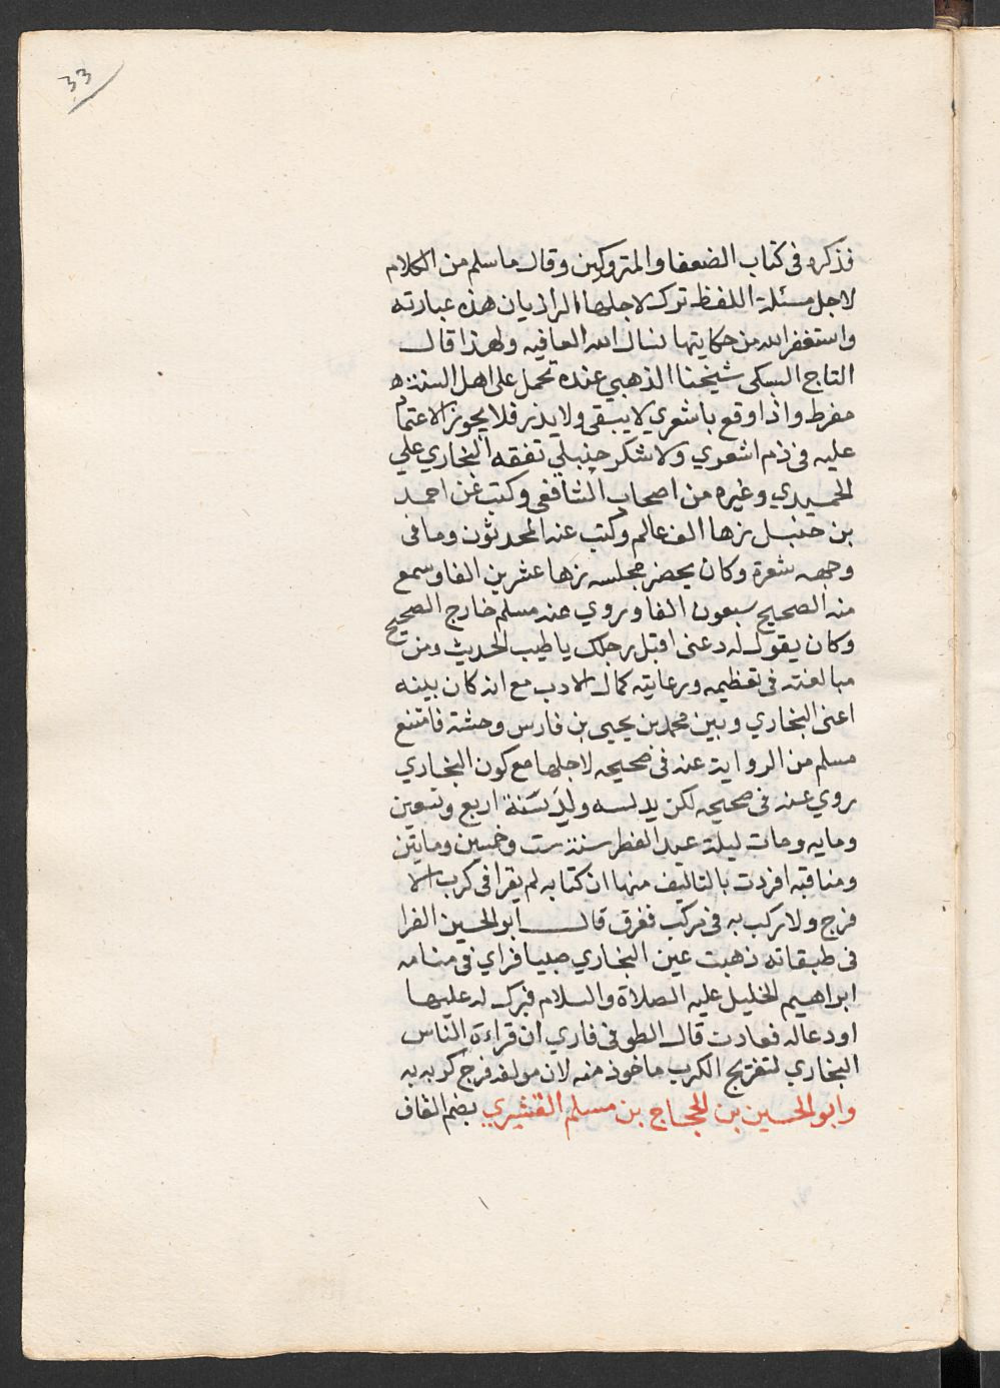 33
فذكره فى كتاب الضعفا والمتروكين وقال ماسلم من الكلام
لاجل مسئلة اللفظ ترك لاجلها الرازيان هذه عبارته
واستغفر الله من حكايتها نسال الله العافيه ولهذا قال
التاج السبكى شيخنا الذهبي عنده تحمل على اهل السنة
مفرط واذا وقع باشعري لا يبقى ولا يذر فلا يجوز الاعتماد
عليه فى ذم اشعري ولا شكر حنبلي تفقه البخاري علي
الحميدي وغيره من اصحاب الشافعى وكتب عن احمد
بن حنبل بزها الف عالم وكتب عنه المحدثون وما فى
وجهه شعرة وكان يحضر مجلسه بزها عشرين الفا وسمع
منه الصحيح سبعون الفا وروي عنه مسلم خارج الصحيح
وكان يقول له دعنى اقبل رجلك يا طيب الحديث ومن
مبالغته فى تعظيمه ورعايته كمال الادب مع انه كان بينه
اعنى البخاري وبين محمد بن يحيى بن فارس وحشة فامتنع
مسلم من الرواية عنه فى صحيحه لاجلها مع كون البخاري
روي عنه فى صحيحه لكن يدلسه ولد سنة اربع وتسعين
ومايه ومات ليلة عيد الفطر سنة ست وخمسين ومايتين
ومناقبه افردت بالتاليف منها ان كتابه لم يقرا فى كرب الا
فرج ولا ركب به فى مركب فغرق قال ابو الحسين الفرا
فى طبقاته ذهبت عين البخاري صبيا فراي فى منامه
ابراهيم الخليل عليه الصلاة والسلام فبرك له عليها
او دعا له فعادت قال الطوفى فاري ان قراءة الناس
البخاري لتفريج الكرب ماخوذ منه لان مولفه فرج كربه به
وابو الحسين بن الحجاج بن مسلم القشيري بضم القاف